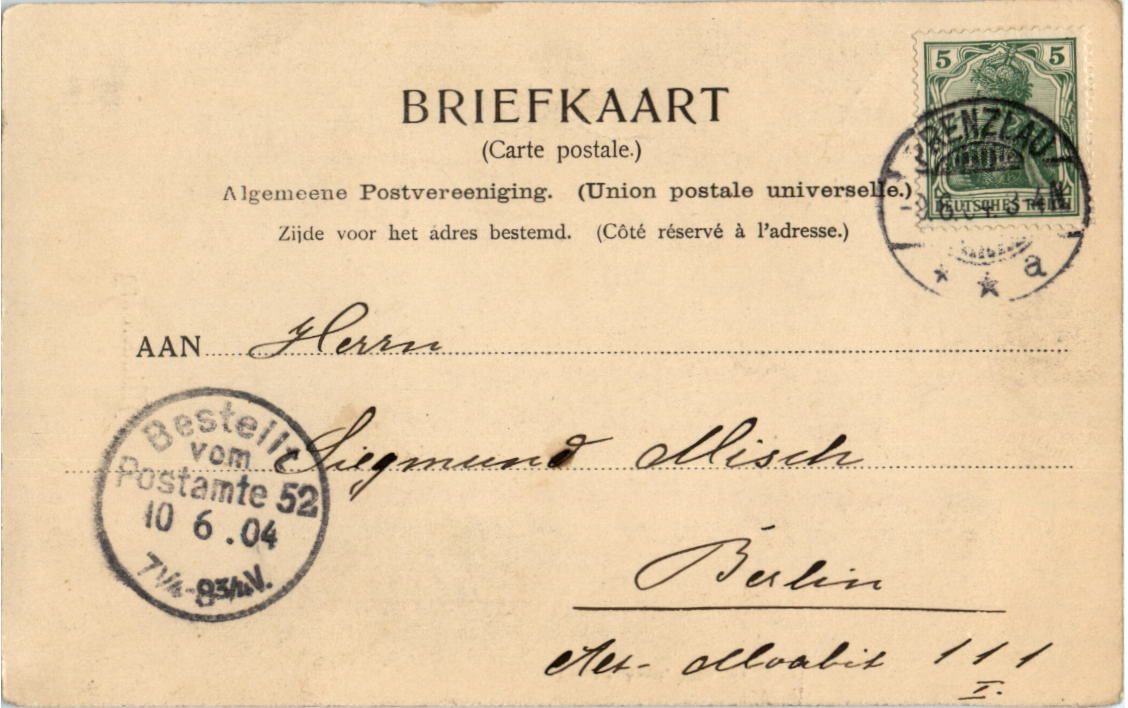 5 5
BRIEFKAART
(Carte postale.)
PRENZLAU
Algemeene Postvereeniging. (Union postale universelle.)
DEUTSCHES REICH
Zijde voor het adres bestemd. (Côté réservé à l'adresse.)
a
AAN Herrn
Bestellt
vom
Postamte 52
10 6 . 04
7 1/4 - 8 3/4 V.
Siegmund Misch
Berlin
Alt-Moabit 111
I.